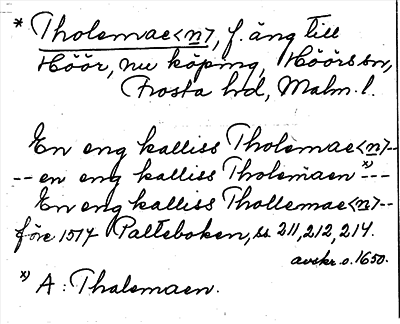 * Tholemae<n>, f. äng till
Höör, nu köping, Höörs sn,
Frosta hd, Malm. l.
En eng kalliss Tholemae<n>--
-- en eng kalliss Tholemaen *) ---
En eng kalliss Thollemae<n>--
före 1514 Palteboken, ss 211, 212, 214.
avskr. o. 1650.
*) A: Thalemaen.